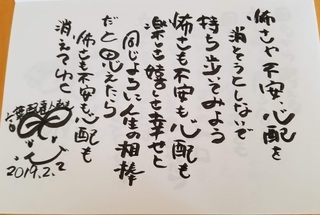 怖さや不安、心配を
消そうとしないで
持ち歩いてみよう
怖さも不安も心配も
楽しさ嬉しさ幸せと
同じように人生の相棒
だと思えたら
怖さも不安も心配も
消えてゆく
2019.2.2